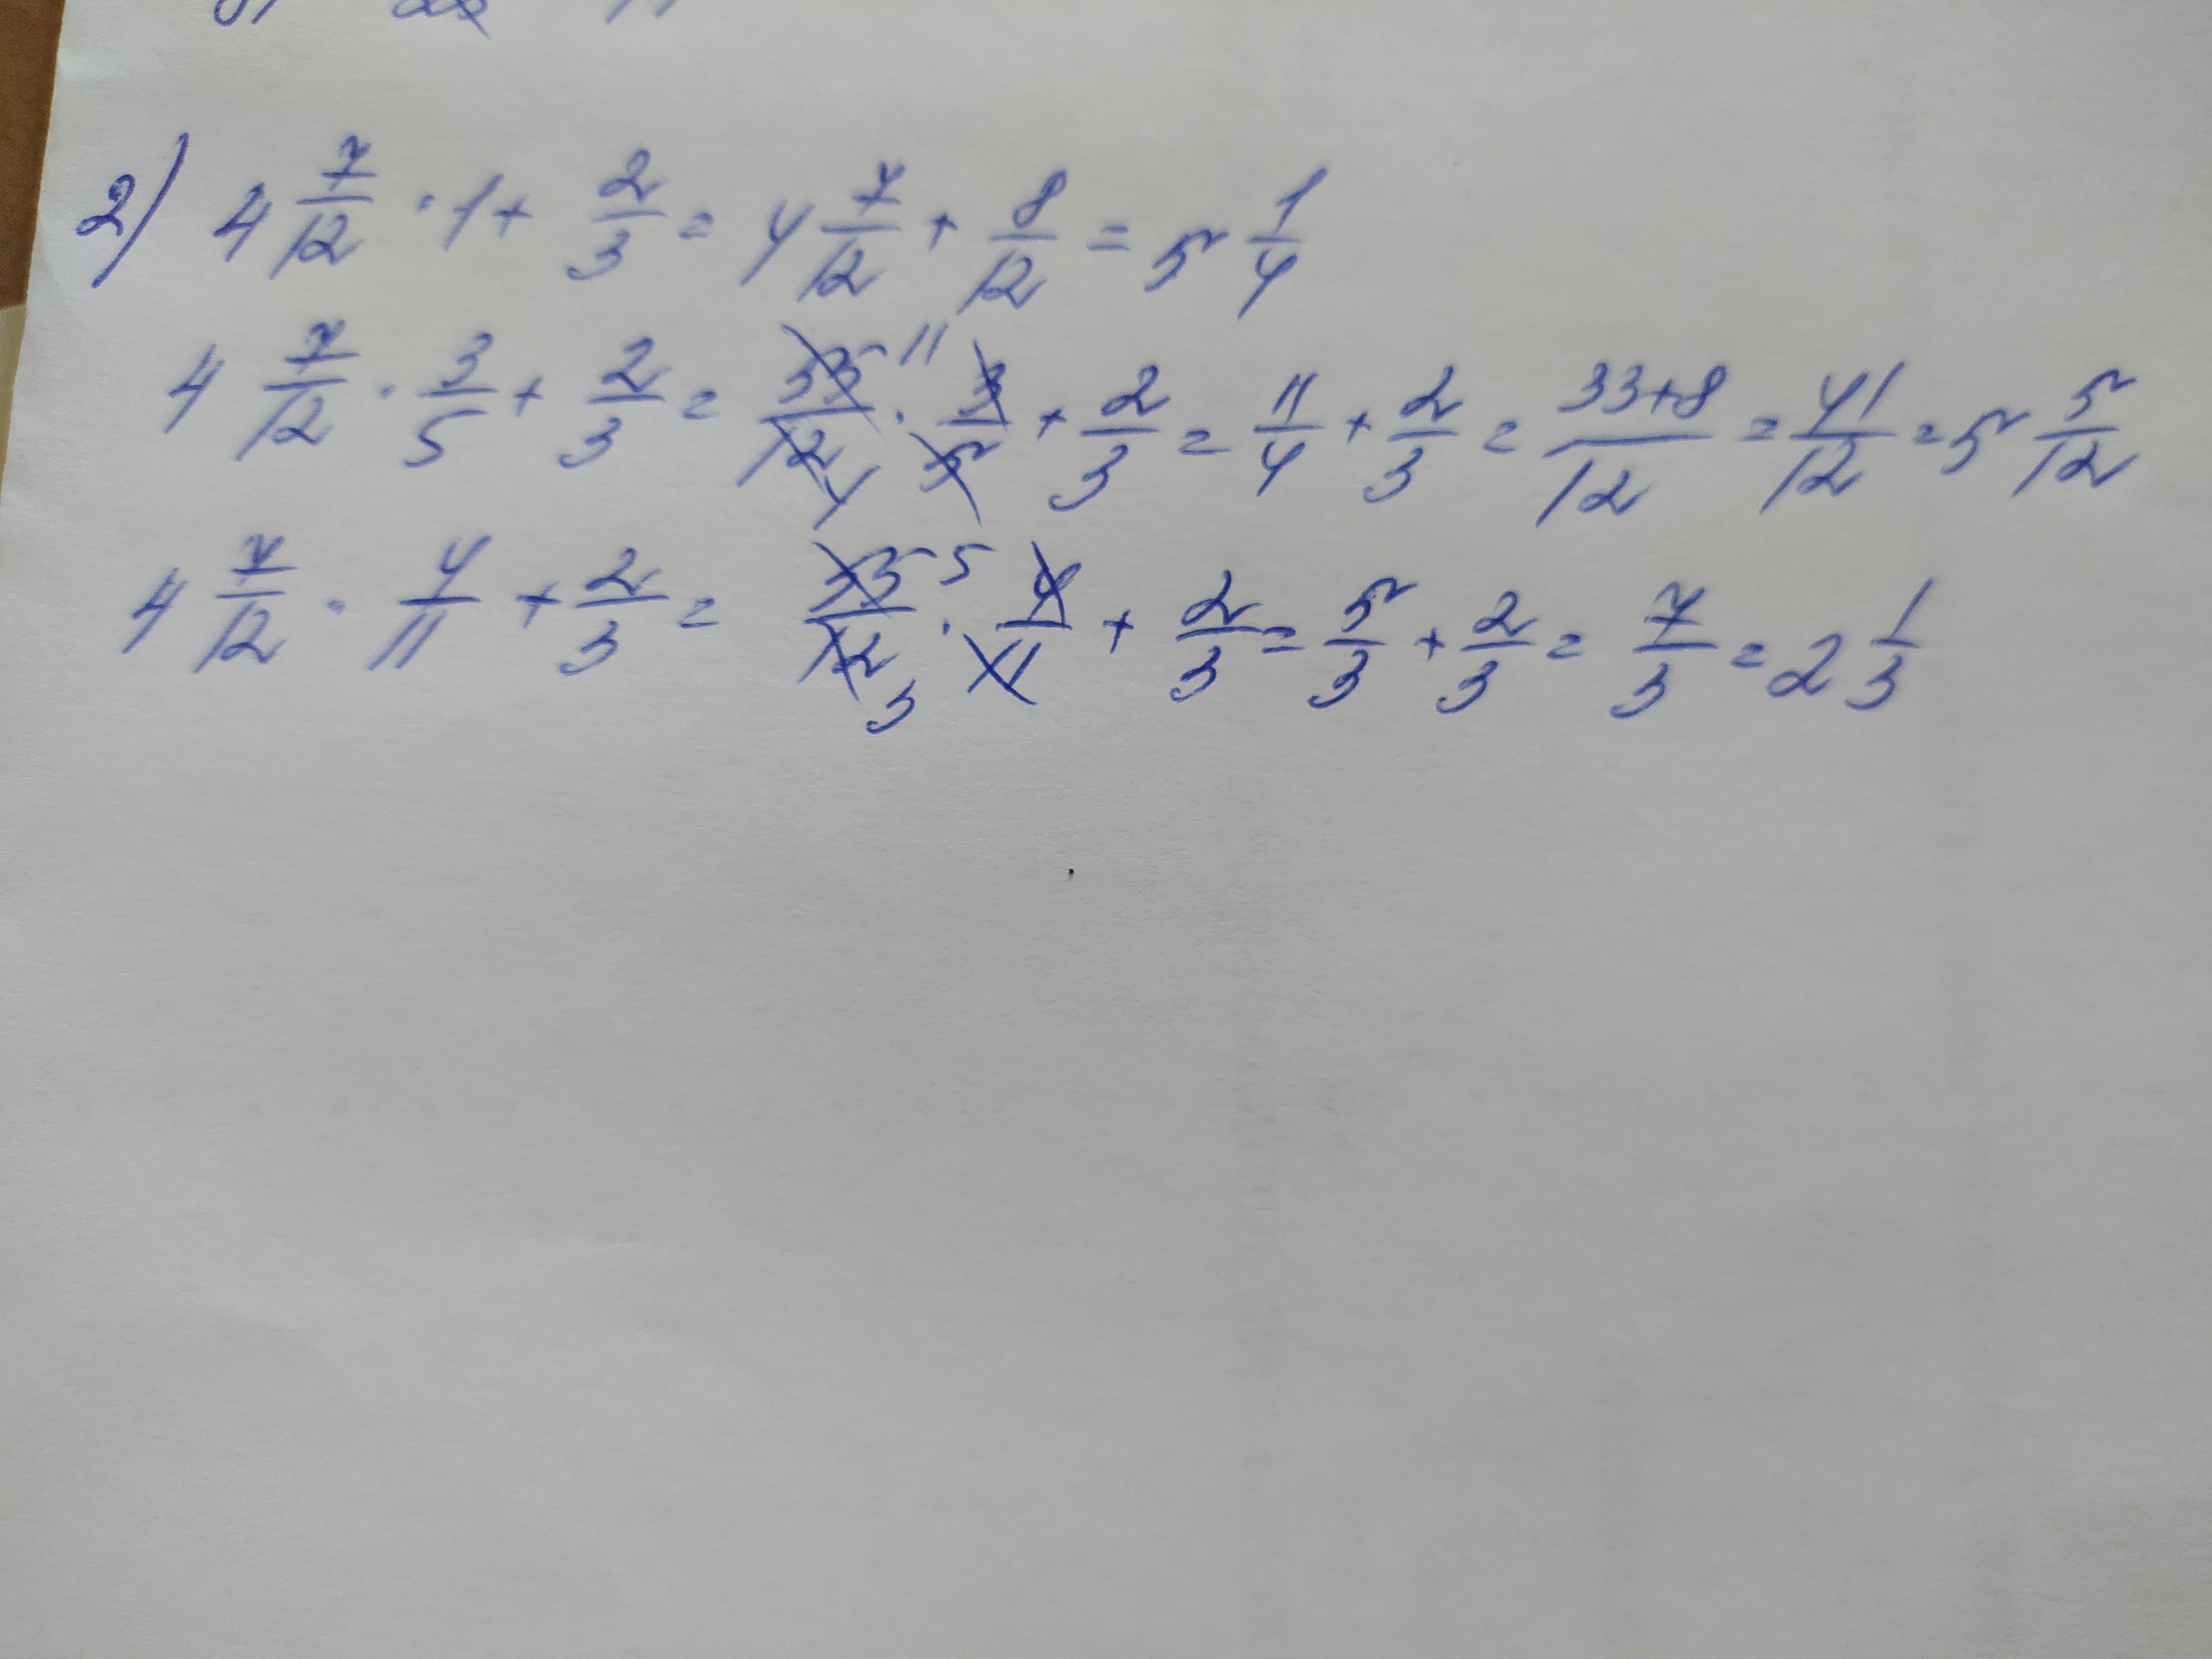 2) 4 7/12 · 1 + 2/3 = 4 7/12 + 8/12 = 5 1/4
4 7/12 · 3/5 + 2/3 = 55/12 11 4 · 3/5 + 2/3 = 11/4 + 2/3 = 33+8/12 = 41/12 = 5 5/12
4 7/12 · 4/11 + 2/3 = 55/12 5 3 · 4/11 + 2/3 = 5/3 + 2/3 = 7/3 = 2 1/3